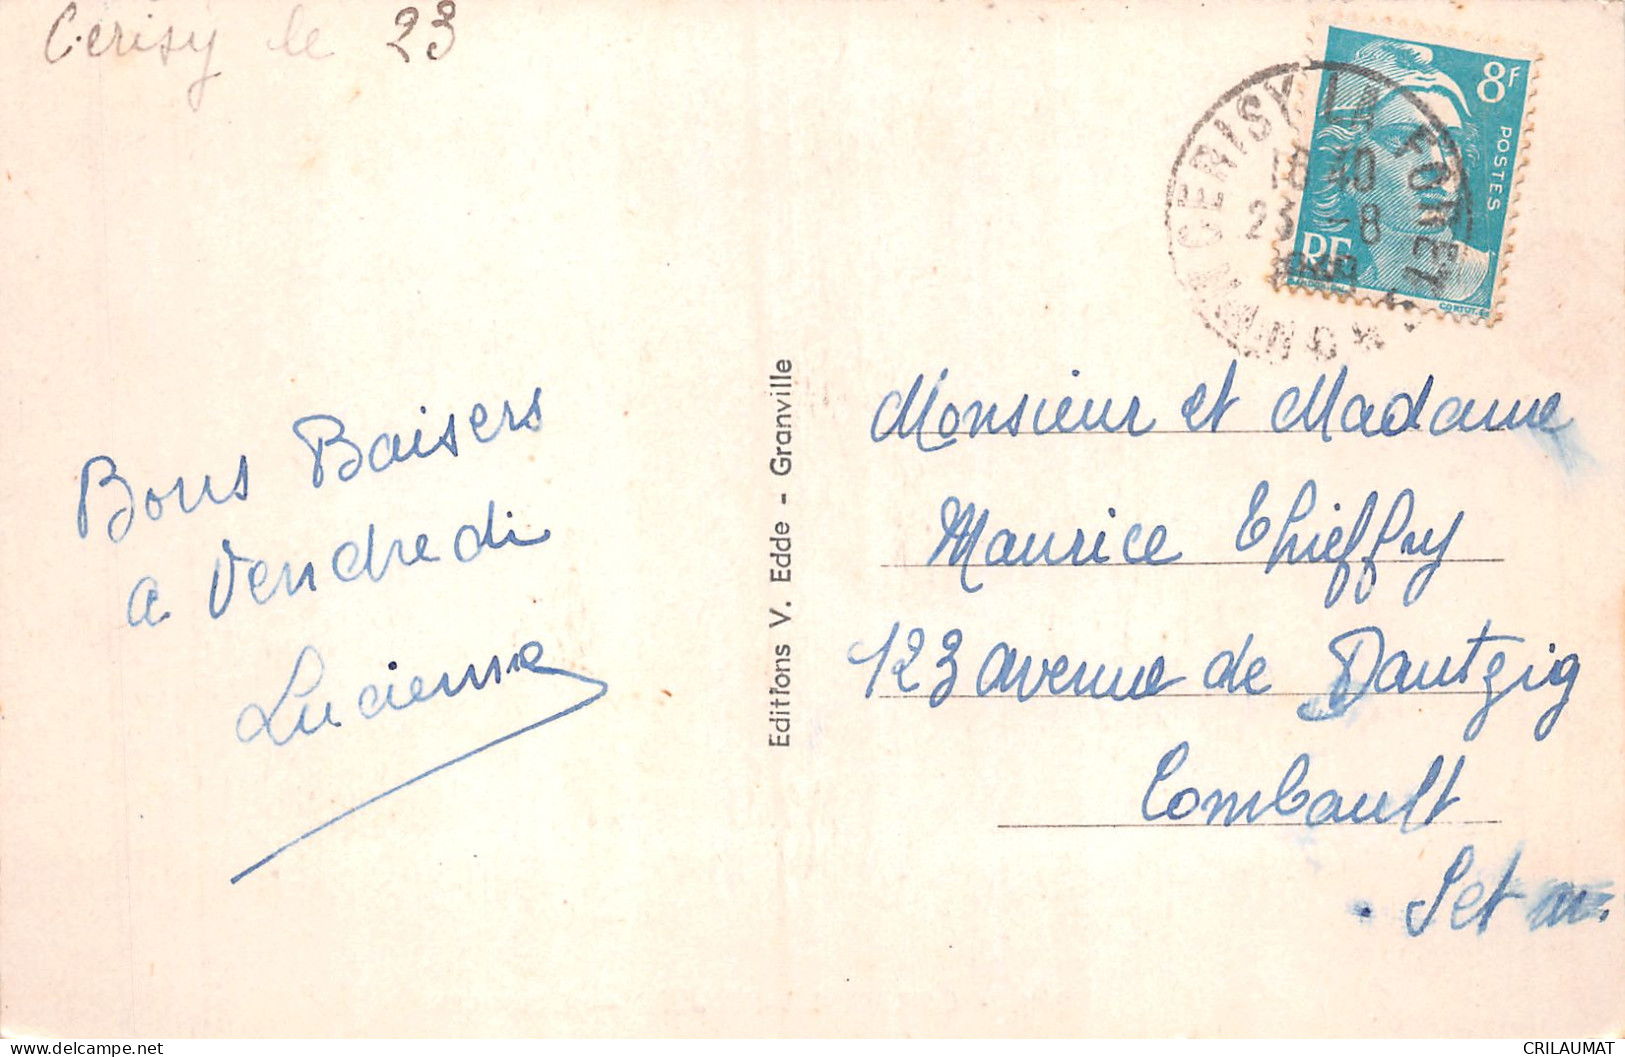 Cerisy le 23
8F
POSTES
RF
CERISY LA FORET
23 -8
MANCHE
Bons Baisers
a Vendredi
Lucienne
Editions V. Edde - Granville
Monsieur et Madame
Maurice Thieffry
123 avenue de Dantzig
Combault
S et m.
CRILAUMAT